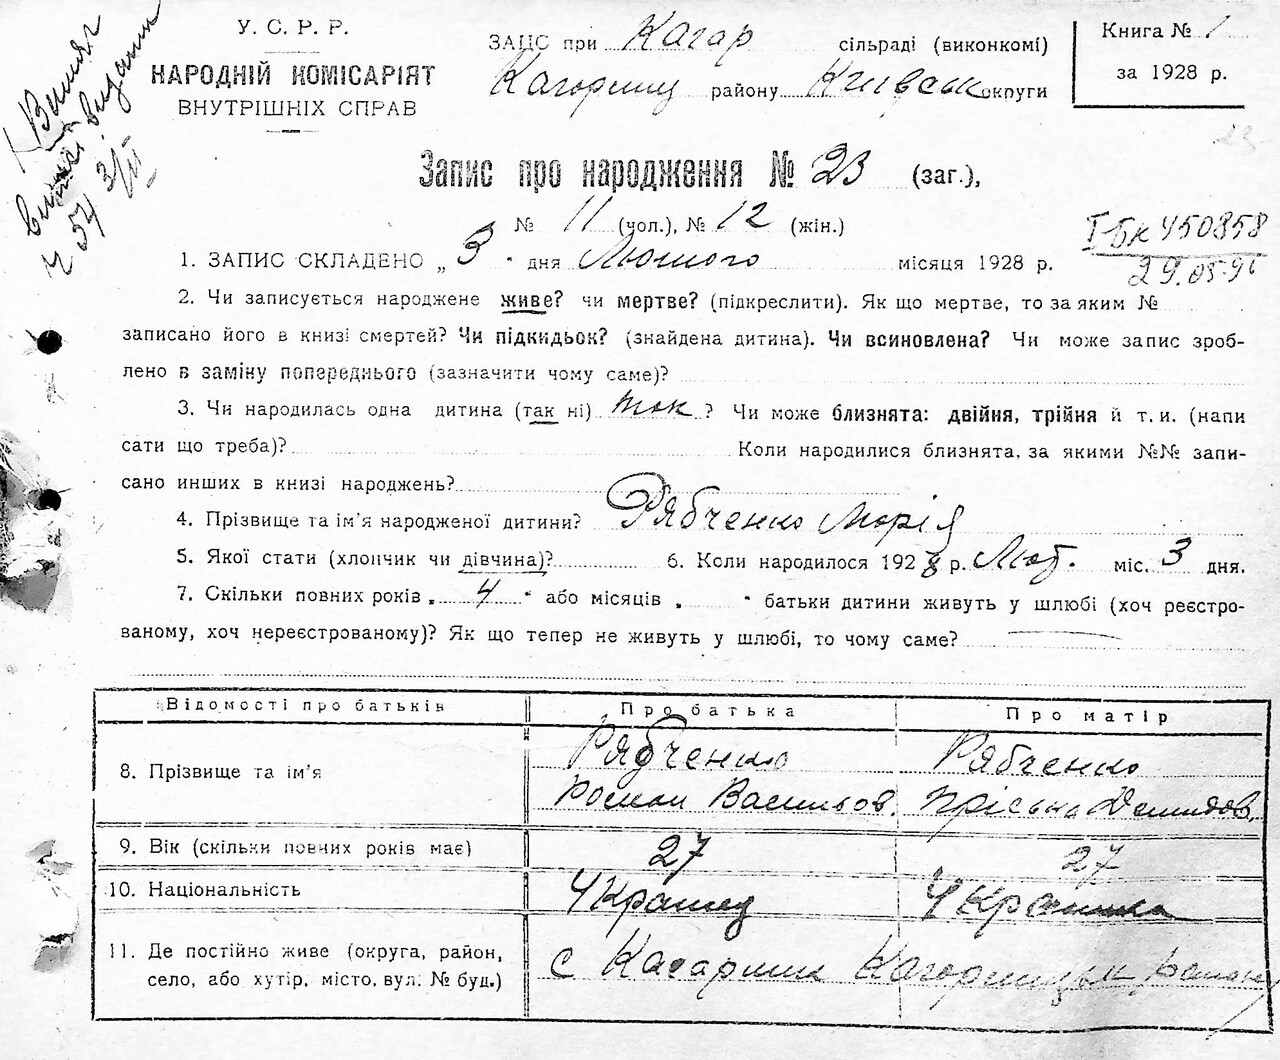 У. С. Р. Р.
НАРОДНІЙ КОМІСАРІЯТ
ВНУТРІШНІХ СПРАВ
ЗАЦС при Кагар сільраді (виконкомі)
Кагорлиц району Київськ округи
Книга № 1
за 1928 р.
23
Витяг
видании
3/VI
Запис про народження № 23 (заг.),
№ 11 (чол.), № 12 (жін.)
I-БК 450858
29.05.96
1. ЗАПИС СКЛАДЕНО „ 3 " дня Лютого місяця 1928 р.
2. Чи записується народжене живе? чи мертве? (підкреслити). Як що мертве, то за яким №
записано його в книзі смертей? Чи підкидьок? (знайдена дитина). Чи всиновлена? Чи може запис зроб-
лено в заміну попереднього (зазначити чому саме)?
3. Чи народилась одна дитина (так ні) так ? Чи може близнята: двійня, трійня й т. и. (напи
сати що треба)? Коли народилися близнята, за якими №№ запи-
сано инших в книзі народжень?
4. Прізвище та ім'я народженої дитини? Рябченко Марія
5. Якої стати (хлопчик чи дівчина)? 6. Коли народилося 1928 р. Лют. міс. 3 дня.
7. Скільки повних років „ 4 " або місяців „ " батьки дитини живуть у шлюбі (хоч реєстро-
ваному, хоч нереєстрованому)? Як що тепер не живуть у шлюбі, то чому саме?
Відомості про батьків Про батька Про матір
8. Прізвище та ім'я Рябченко Роман Васильов. Рябченко Пріська Демидов.
9. Вік (скільки повних років має) 27 27
10. Національність Українец Українка
11. Де постійно живе (округа, район,
село, або хутір, місто, вул. № буд.) с Кагарлик Кагорлицьк району